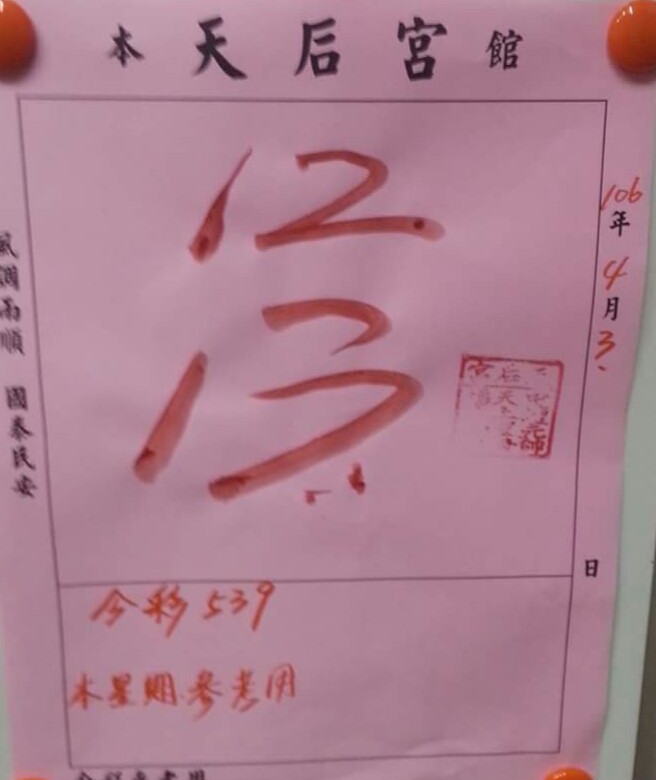 本天后宮館
12
13
106年4月3日
風調雨順 國泰民安
今彩539
本星期參考用